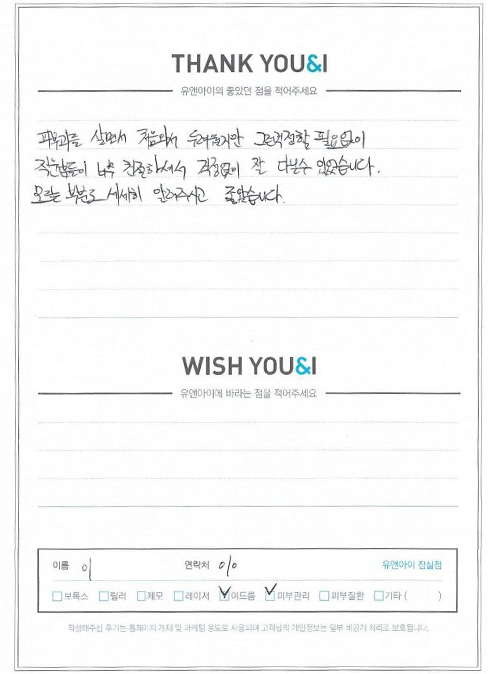 THANK YOU&I
유앤아이의 좋았던 점을 적어주세요
피부과를 살면서 처음와서 두려웠지만 그런걱정할 필요없이
직원분들이 너무 친절하셔서 걱정없이 잘 다닐수 있었습니다.
모르는 부분도 세세히 알려주시고 좋았습니다.
WISH YOU&I
유앤아이에 바라는 점을 적어주세요
이름 이 연락처 010 유앤아이 잠실점
보톡스 필러 제모 레이저 여드름 피부관리 피부질환 기타 ( )
작성해주신 후기는 홈페이지 게재 및 마케팅 용도로 사용되며 고객님의 개인정보는 일부 비공개 처리로 보호됩니다.